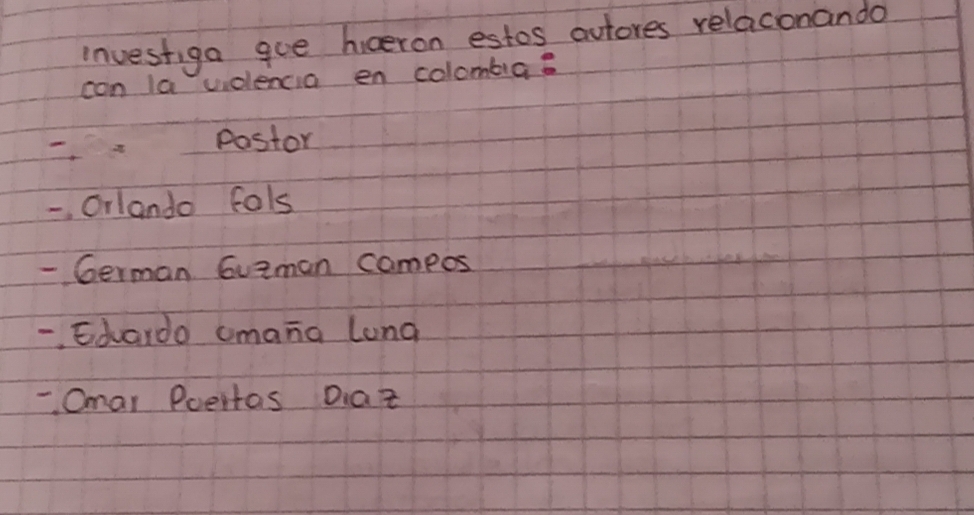 investiga que hiceron estos autores relaconando
con la violencia en colombia:
-. Pastor
-. Orlando fals
-. German Guzman campos
-. Eduardo umaña Luna
-. Omar Puertas Diaz